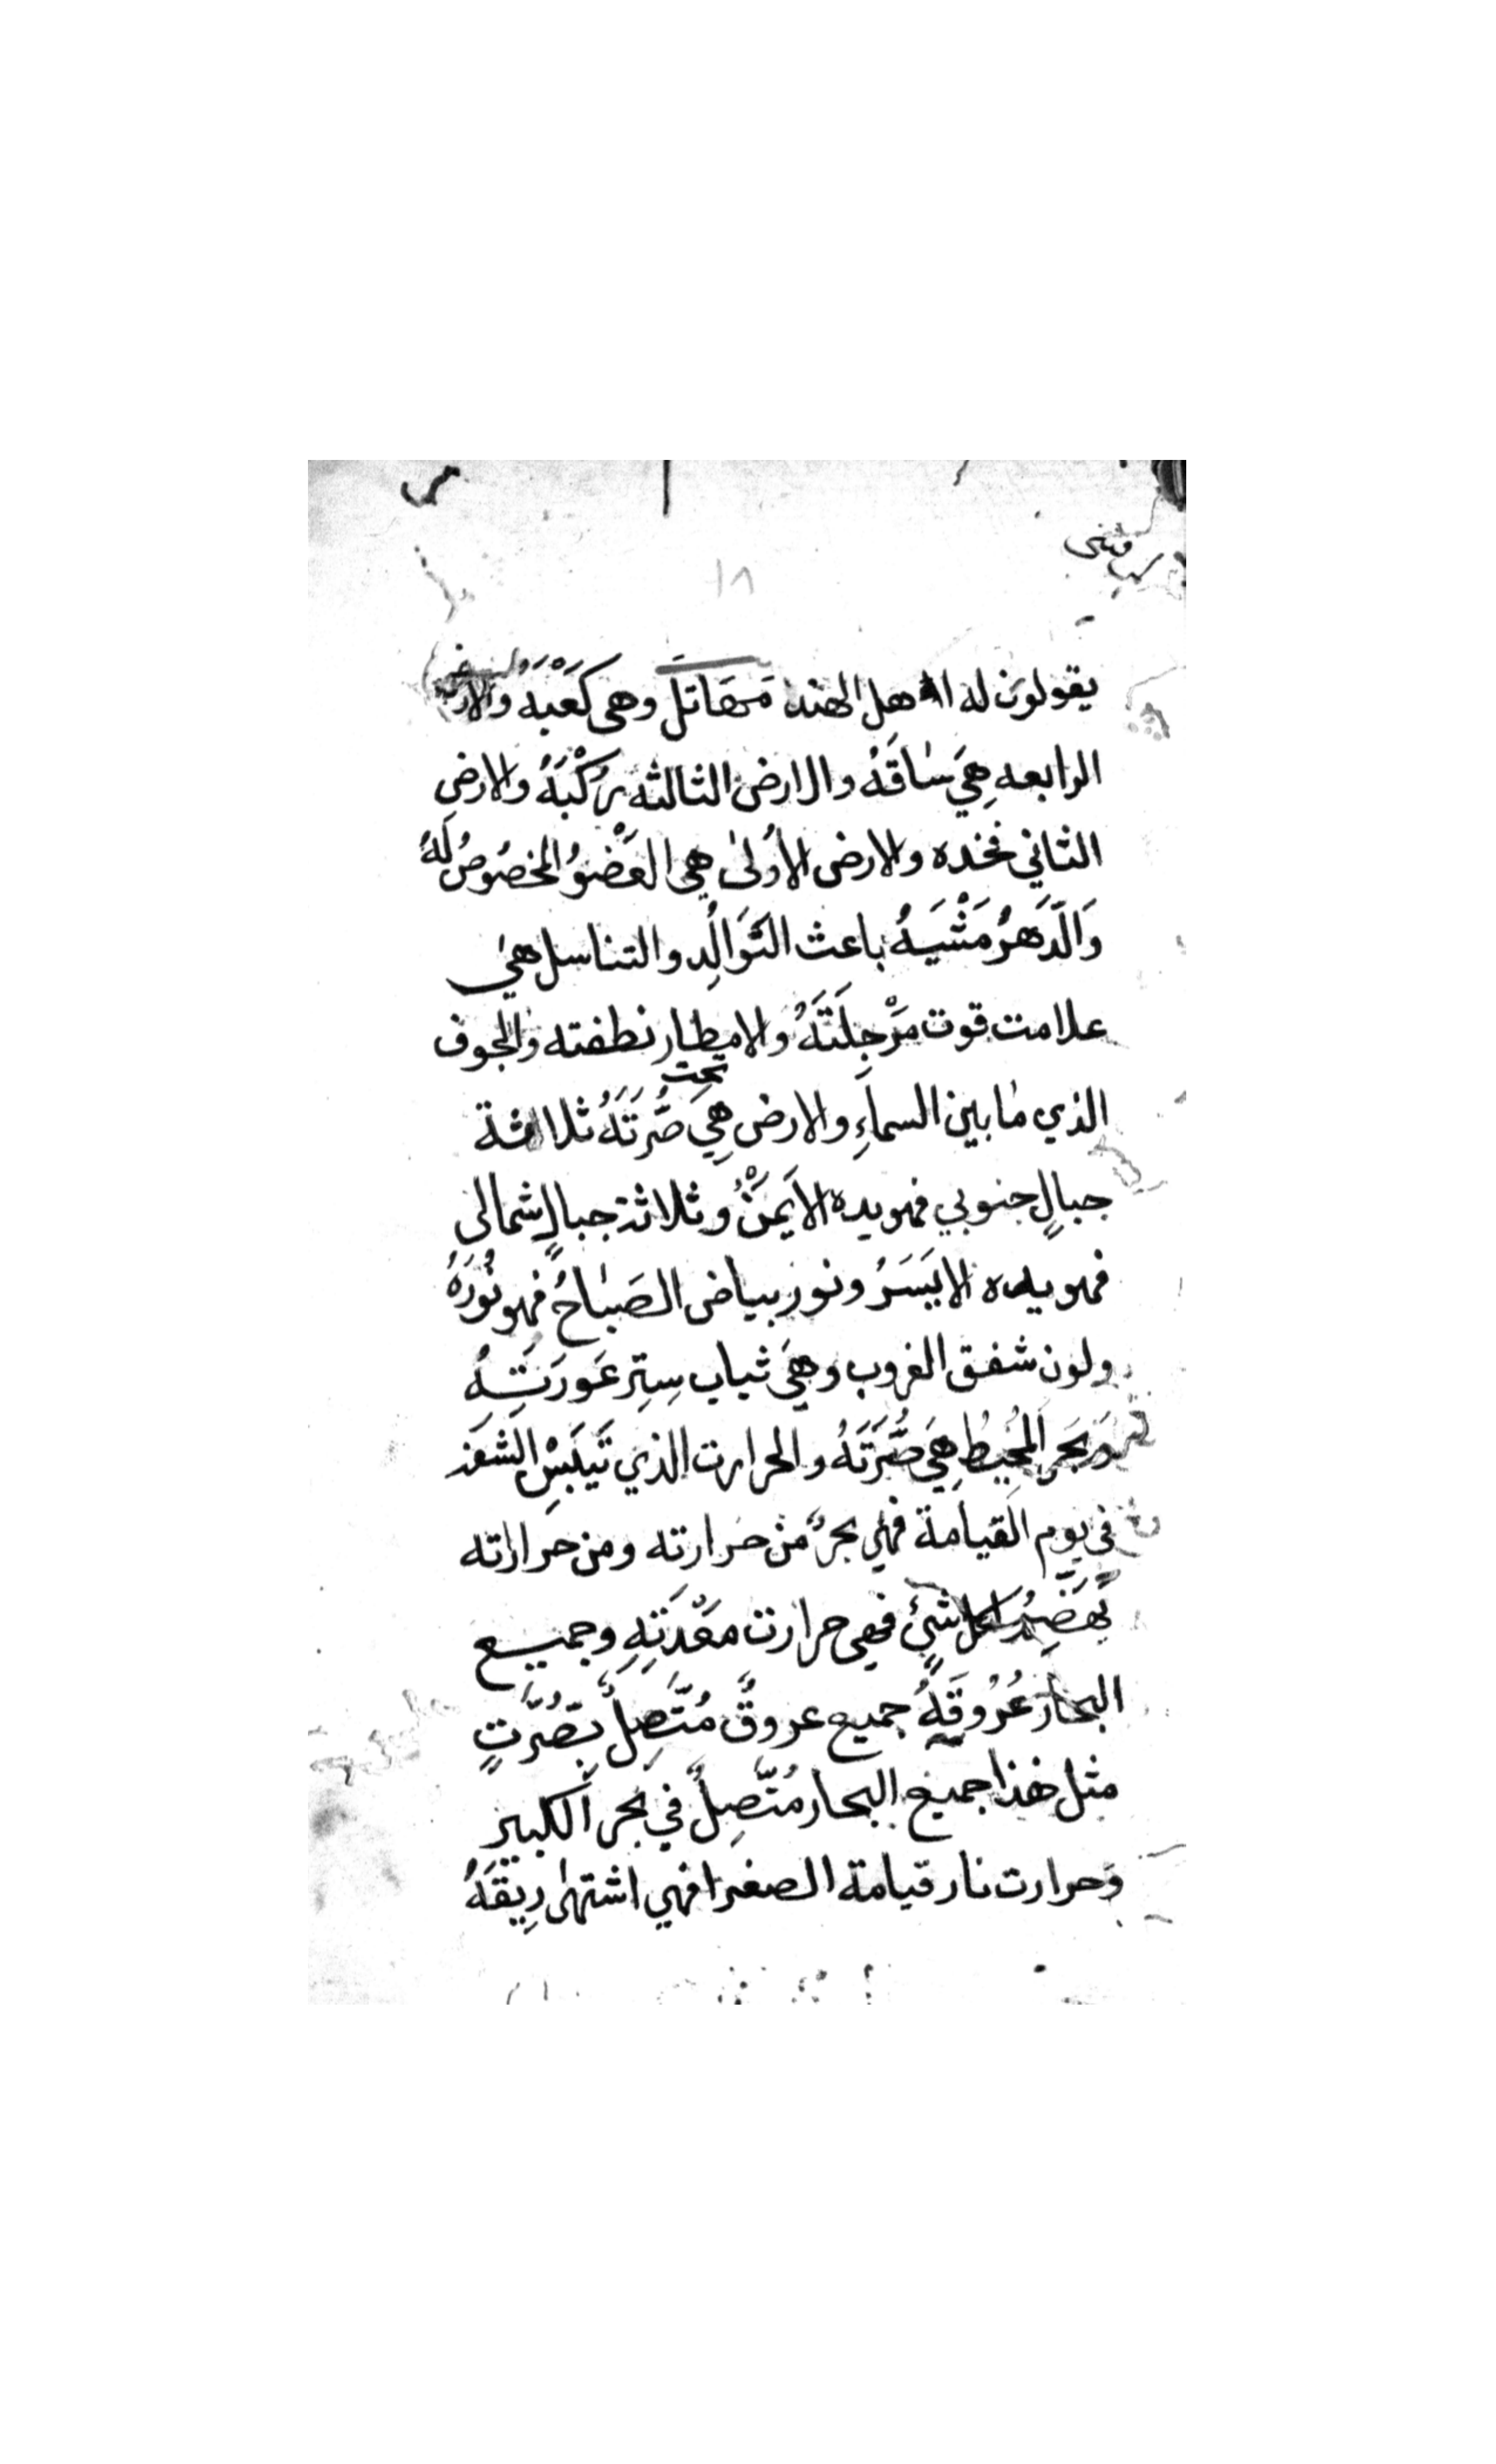 ١٨
يقولون له اهل الهند مَهَاتَل وهى كَعْبَهُ والارض
الرابعه هِيَ سَاقَهُ والارض الثالثه رُكْبَهُ والارضِ
الثاني فخذه والارض الاُولىٰ هي العَضْوُ المخصُوصُ لَهُ
وَالَّدَهرُ مَشْيَهُ باعث التَوَالُدِ والتناسل هي
علامت قوت مَرْجِلَتَهُ والامطار نطفته والجوف
الذي مابين السماءِ والارض هِيَ تحت صُرَّتَهُ ثلاثة
جبالٍ جنوبي فهو يده الايَمَنْ وثلاثة جبالٍ شمالى
فهو يده الايَسَرُ ونور بياض الصَبَاحُ فهو نُورَهُ
ولون شفق الغروب وهَيَ ثياب سِتِر عَورَتِهُ
بَحر المُحيطُ هِيَ صُرَّتَهُ والحرارت الذي تَيَبَسْ
في يوم القيامة فهي بحرٌ من حرارته ومن حرارته
كل شيٍ فهى حرارت مَعْدَتِهِ وجميع
البحار عُرُوقَهُ جميع عروقٌ مُتَّصِلٌ بَصُرَّتٍ
مثل هذا جميع البحار مُتَّصِلٌ في بحر الكبير
وَحرارت نار قيامة الصغرا فهي اشتهى رِيقَهُ